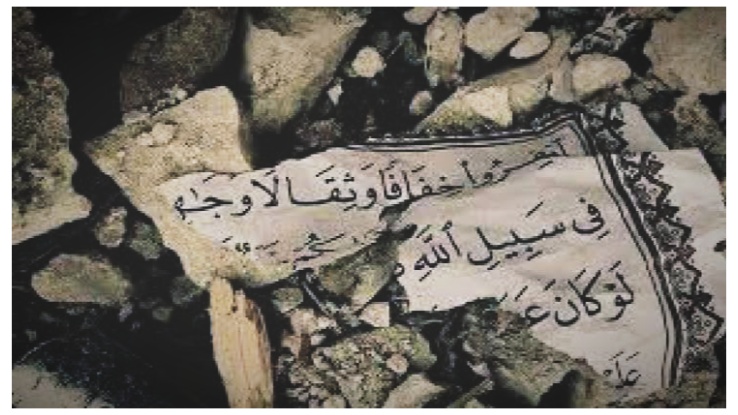 ٱنفِرُوا۟ خِفَافًا وَثِقَالًا وَجَـٰهِ
فِى سَبِيلِ ٱللَّهِ
لَوْ كَانَ عَرَ
عَلَيْ